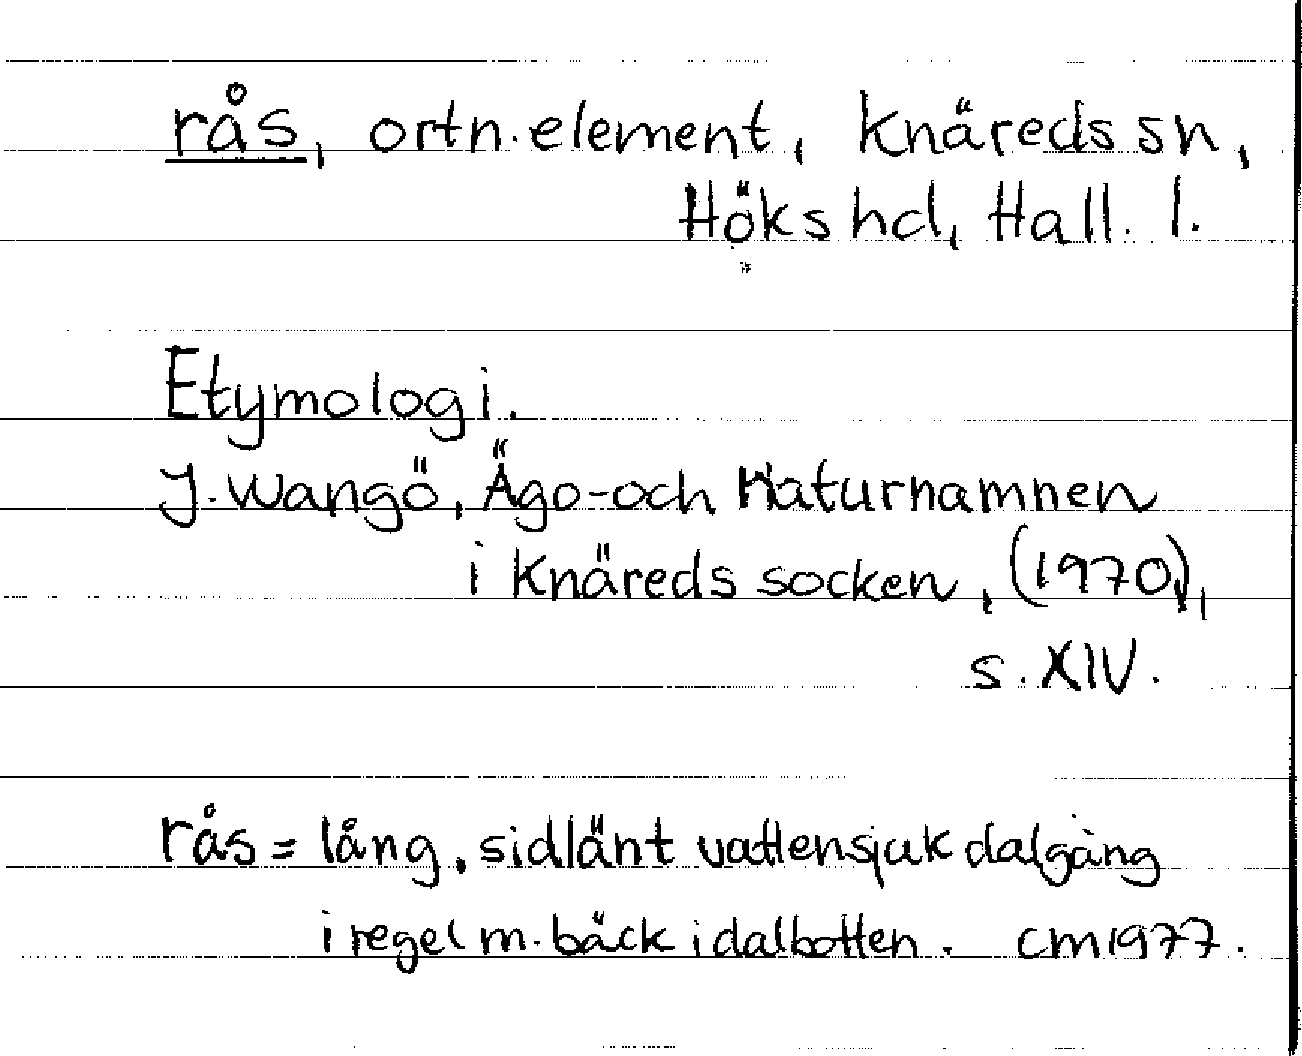 rås, ortn.element, Knäreds sn,
Höks hd, Hall. l.
Etymologi.
J. Wangö, Ägo- och Naturnamnen
i Knäreds socken, (1970),
s. XIV.
rås = lång, sidlänt vattensjuk dalgång
i regel m. bäck i dalbotten. CM 1977.